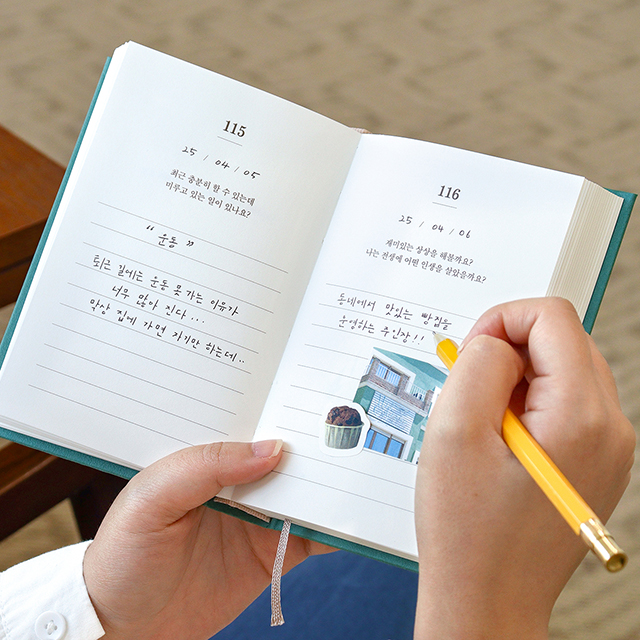 115
25 / 04 / 05
최근 충분히 할 수 있는데
미루고 있는 일이 있나요?
“ 운동 ”
퇴근 길에는 운동 못 가는 이유가
너무 많아 진다...
막상 집에 가면 자기만 하는데..
116
25 / 04 / 06
재미있는 상상을 해볼까요?
나는 전생에 어떤 인생을 살았을까요?
동네에서 맛있는 빵집을
운영하는 주인장!!